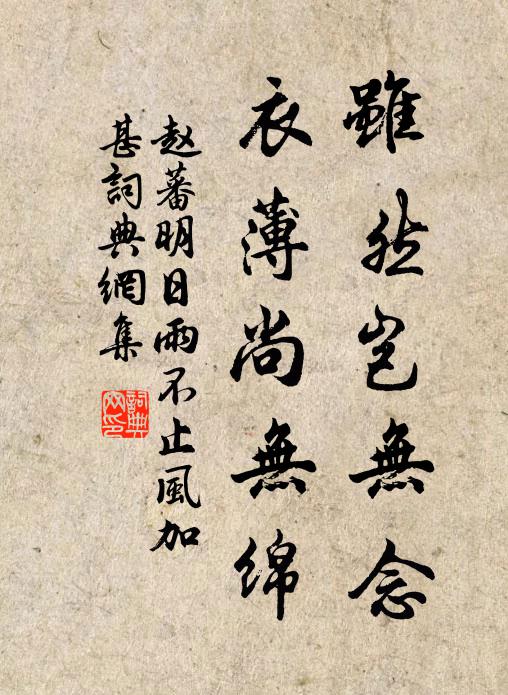 雖然岂無念
衣薄尚無綿
赵蕃明日雨不止風加
甚詞典網集
詞典网印